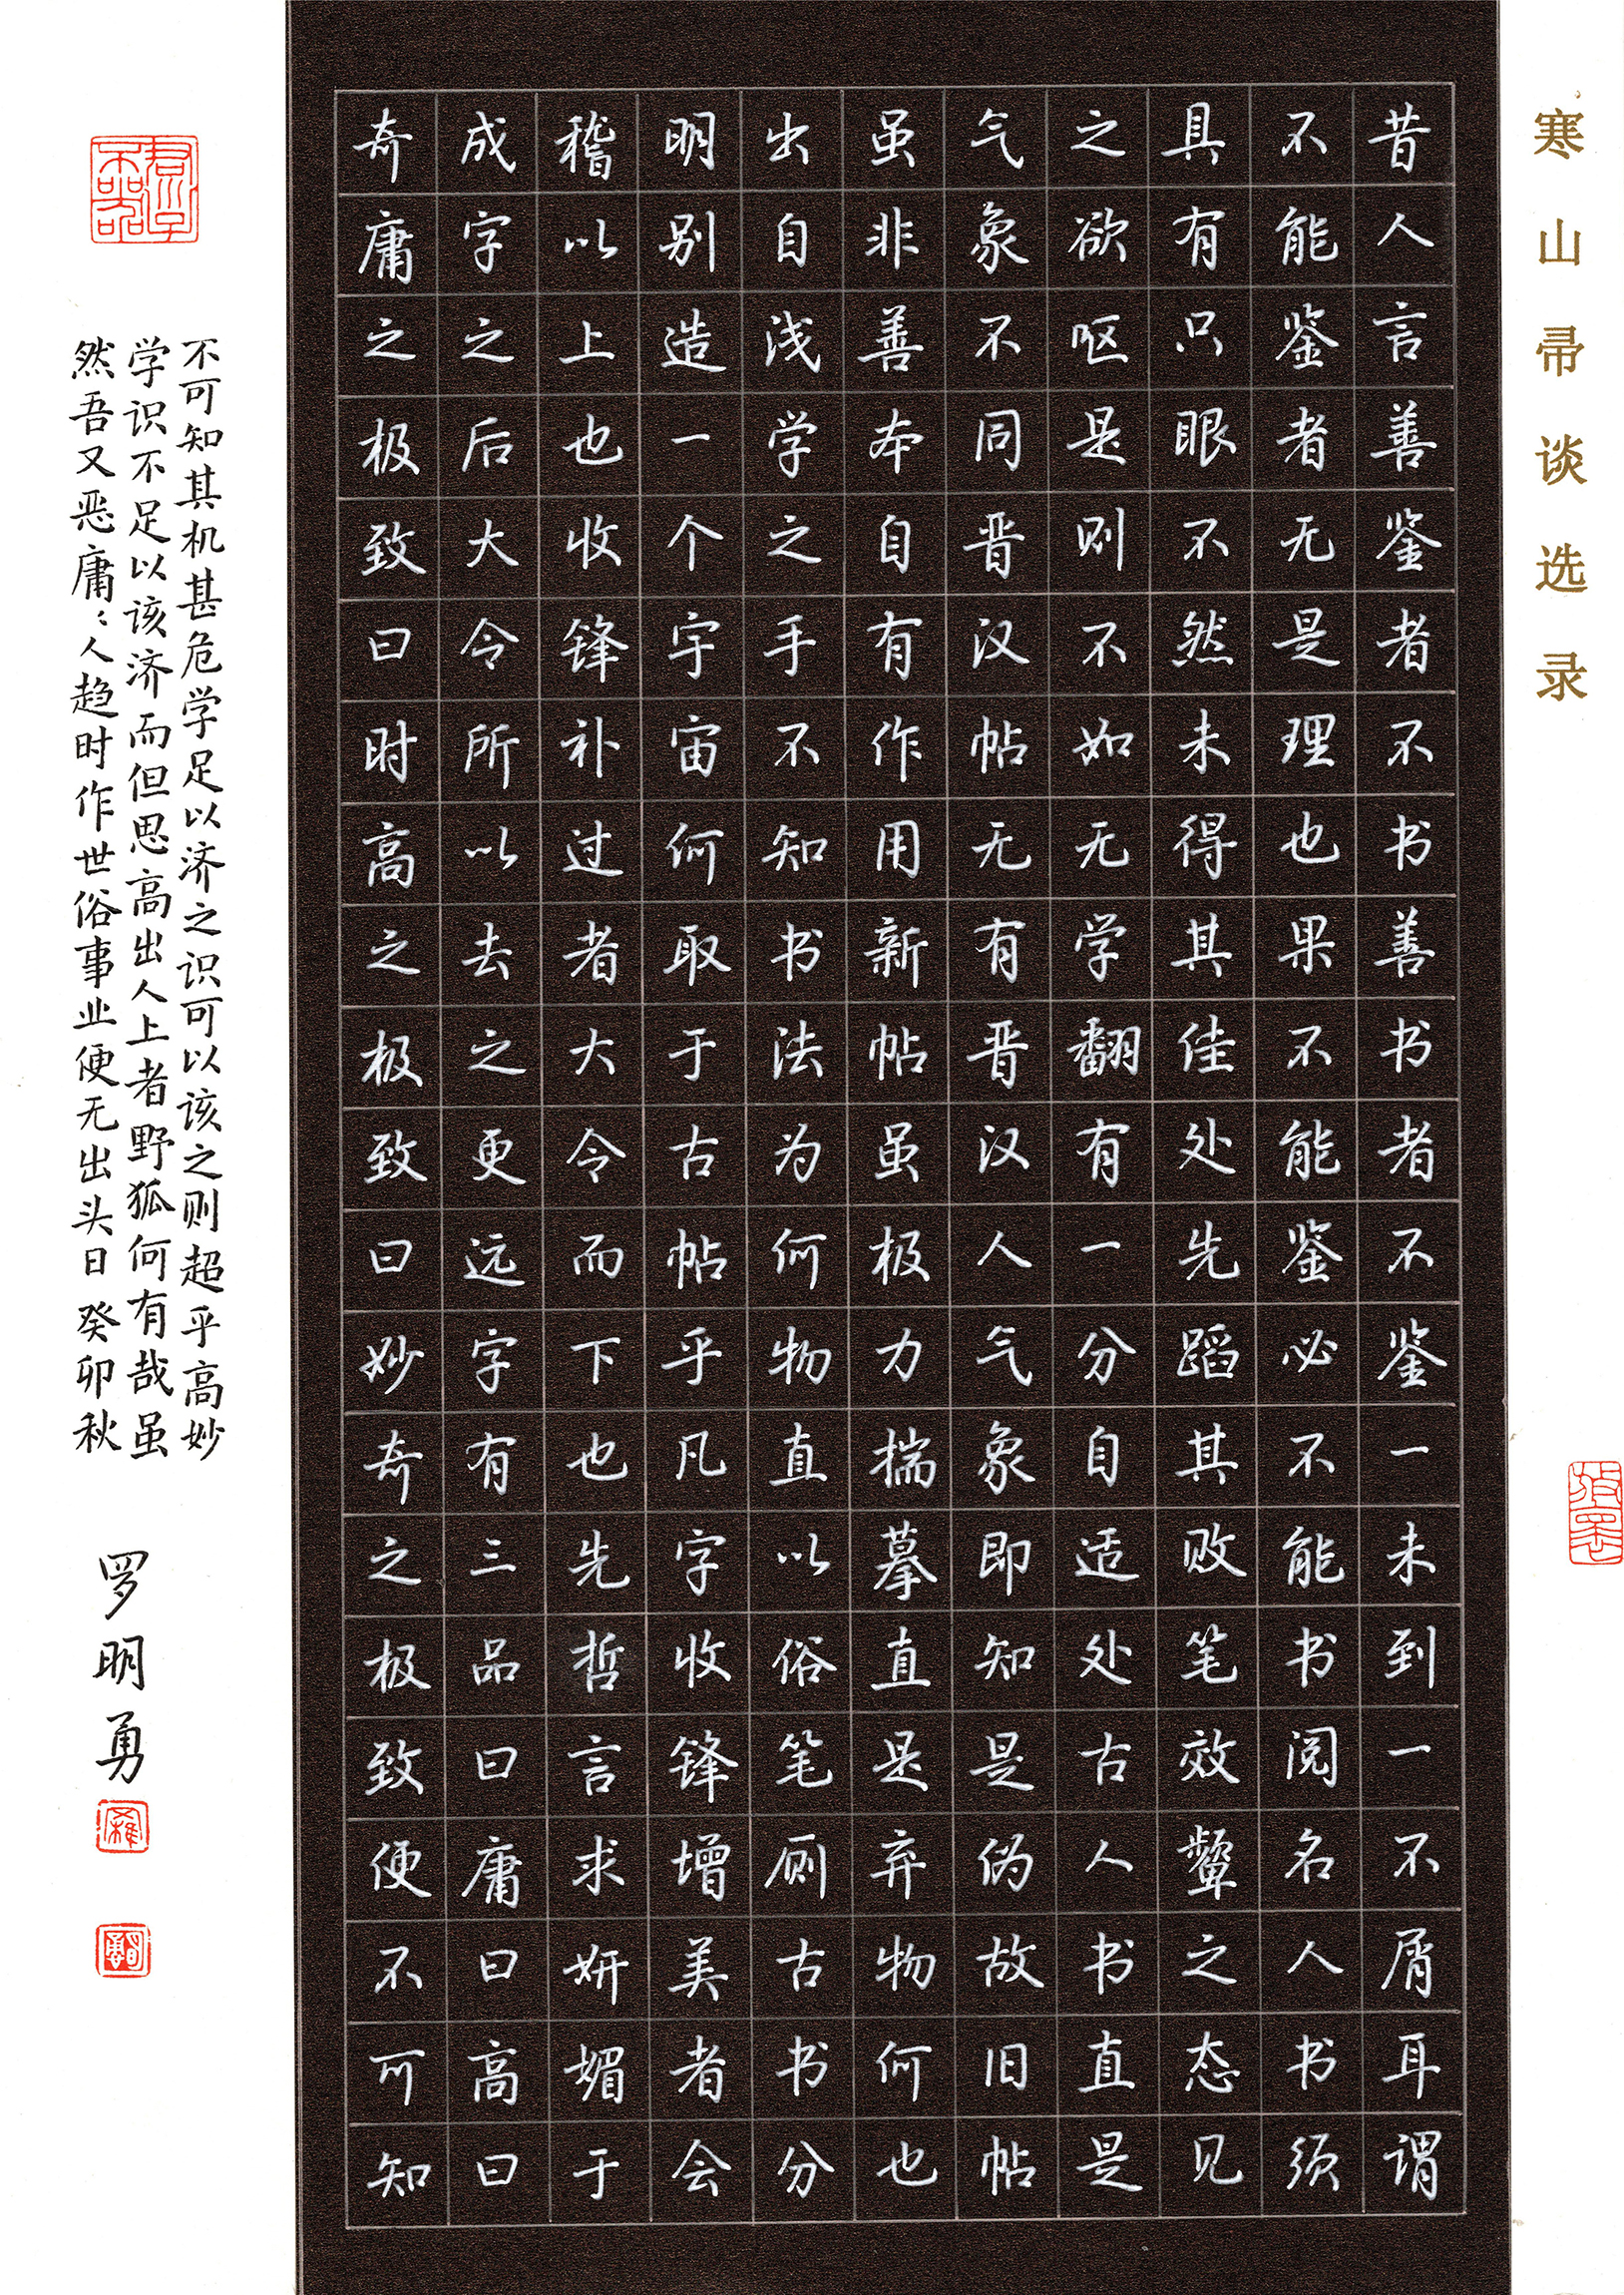 寒山帚谈选录
昔人言善鉴者不书善书者不鉴一未到一不屑耳谓
不能鉴者无是理也果不能鉴必不能书阅名人书须
具有只眼不然未得其佳处先蹈其败笔效颦之态见
之欲呕是则不如无学翻有一分自适处古人书直是
气象不同晋汉帖无有晋汉人气象即知是伪故旧帖
虽非善本自有作用新帖虽极力揣摹直是弃物何也
出自浅学之手不知书法为何物直以俗笔厕古书分
明别造一个宇宙何取于古帖乎凡字收锋增美者会
稽以上也收锋补过者大令而下也先哲言求妍媚于
成字之后大令所以去之更远字有三品曰庸曰高曰
奇庸之极致曰时高之极致曰妙奇之极致便不可知
不可知其机甚危学足以济之识可以该之则超乎高妙
学识不足以该济而但思高出人上者野狐何有哉虽
然吾又恶庸〻人趋时作世俗事业便无出头日癸卯秋
罗明勇
君子不器